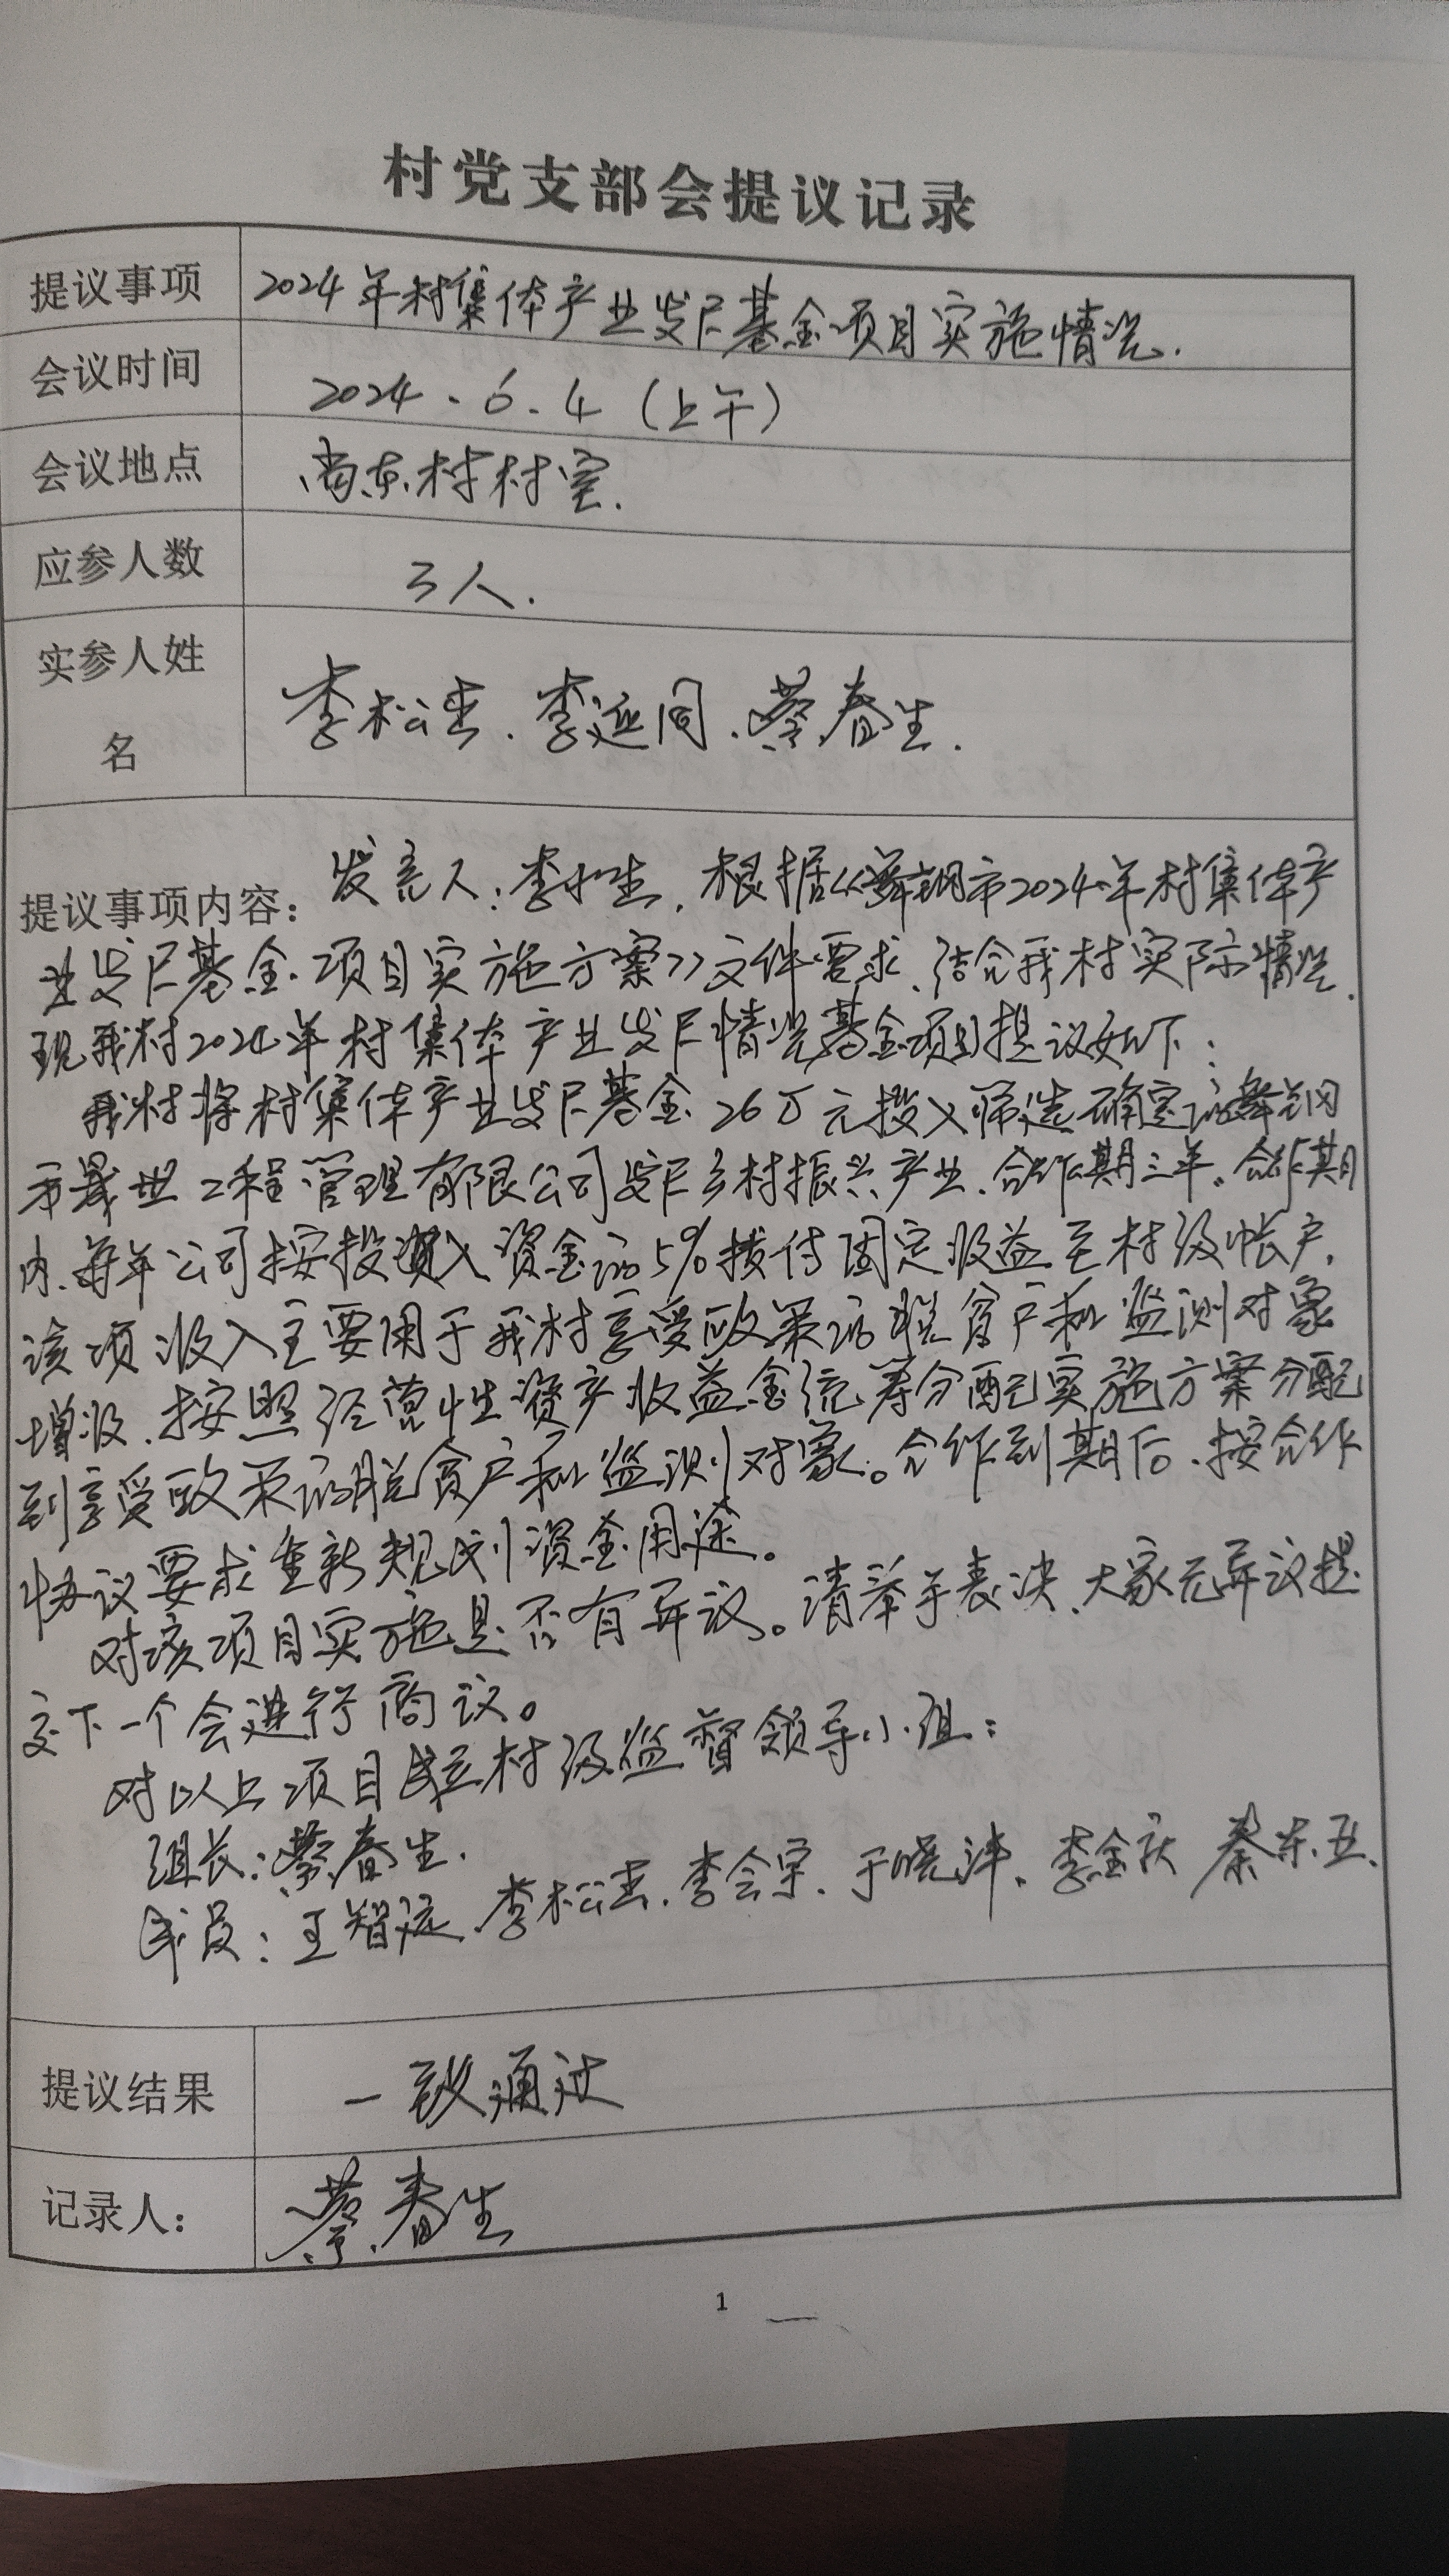 村党支部会提议记录
提议事项 2024年村集体产业发展基金项目实施情况.
会议时间 2024.6.4（上午）
会议地点 尚东村村室.
应参人数 3人.
实参人姓名 李松 . 李延同 . 蔡春生 .
提议事项内容： 发言人：李 . 根据《舞钢市2024年村集体产
业发展基金项目实施方案》文件要求、结合我村实际情况.
现我村2024年村集体产业发展情况基金项目提议如下：
我村将村集体产业发展基金26万元投入筛选确定的舞钢
市 世工程管理有限公司发展乡村振兴产业、合作期三年。合作期
内、每年公司按投入资金的5%拨付固定收益至村级帐户.
该项收入主要用于我村享受政策的脱贫户和监测对象
增收、按照经营性资产收益金统筹分配实施方案分配
到享受政策的脱贫户和监测对象。合作到期后、按合作
协议要求重新规划资金用途。
对该项目实施是否有异议。请举手表决、大家无异议提
交下一个会进行商议。
对以上项目成立村级监督领导小组：
组长：蔡春生.
成员：王智 . 李松 . 李会 . 于晓 . 李金庆 秦东 .
提议结果 一致通过
记录人： 蔡春生
1